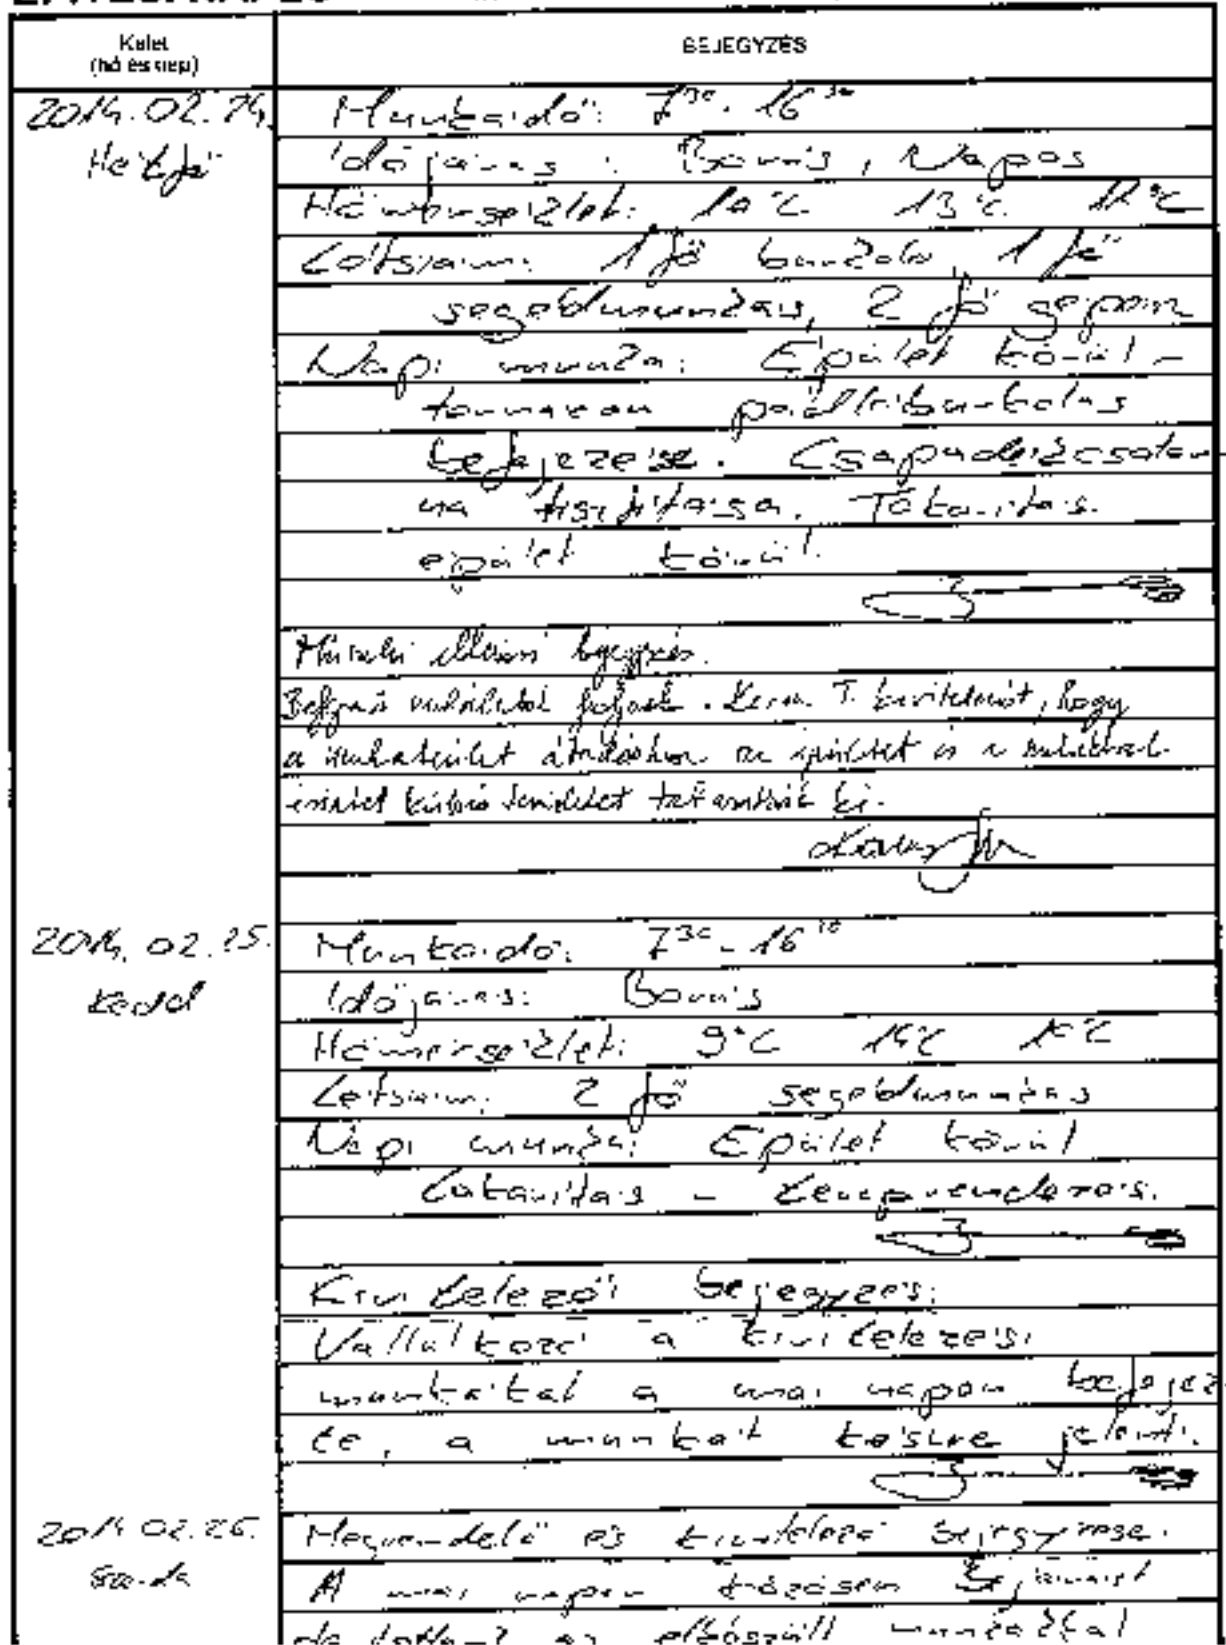 Kelet
(hó és nap)
BEJEGYZÉS
2014.02.24.
Hétfő
Munkaidő: 7³⁰- 16³⁰
Időjárás: Borús, Napos
Hőmérséklet: 10°C 13°C 11°C
Létszám: 1 fő burkoló, 1 fő
segédmunkás, 2 fő gépész
Napi munka: Épület körül -
padlóburkolás
befejezése. Csapadékcsator-
na tisztítása. Takarítás
épület körül.
Műszaki ellenőri bejegyzés.
Befejező munkálatok folynak. Kérem T. kivitelezőt, hogy
a munkaterület átadáskor az épületet és a
érintett külső területet takarítsák ki.
2014.02.25.
Kedd
Munkaidő: 7³⁰- 16³⁰
Időjárás: Borús
Hőmérséklet: 9°C 14°C 10°C
Létszám: 2 fő segédmunkás
Napi munka: Épület körül
takarítás - tereprendezés.
Kivitelezői bejegyzés:
Vállalkozó a kivitelezési
munkákat a mai napon befejez-
te, a munkát készre jelenti.
2014.02.26.
Szerda
Megrendelő és kivitelező bejegyzése.
A mai napon közösen bejárást
az elkészült munkákkal